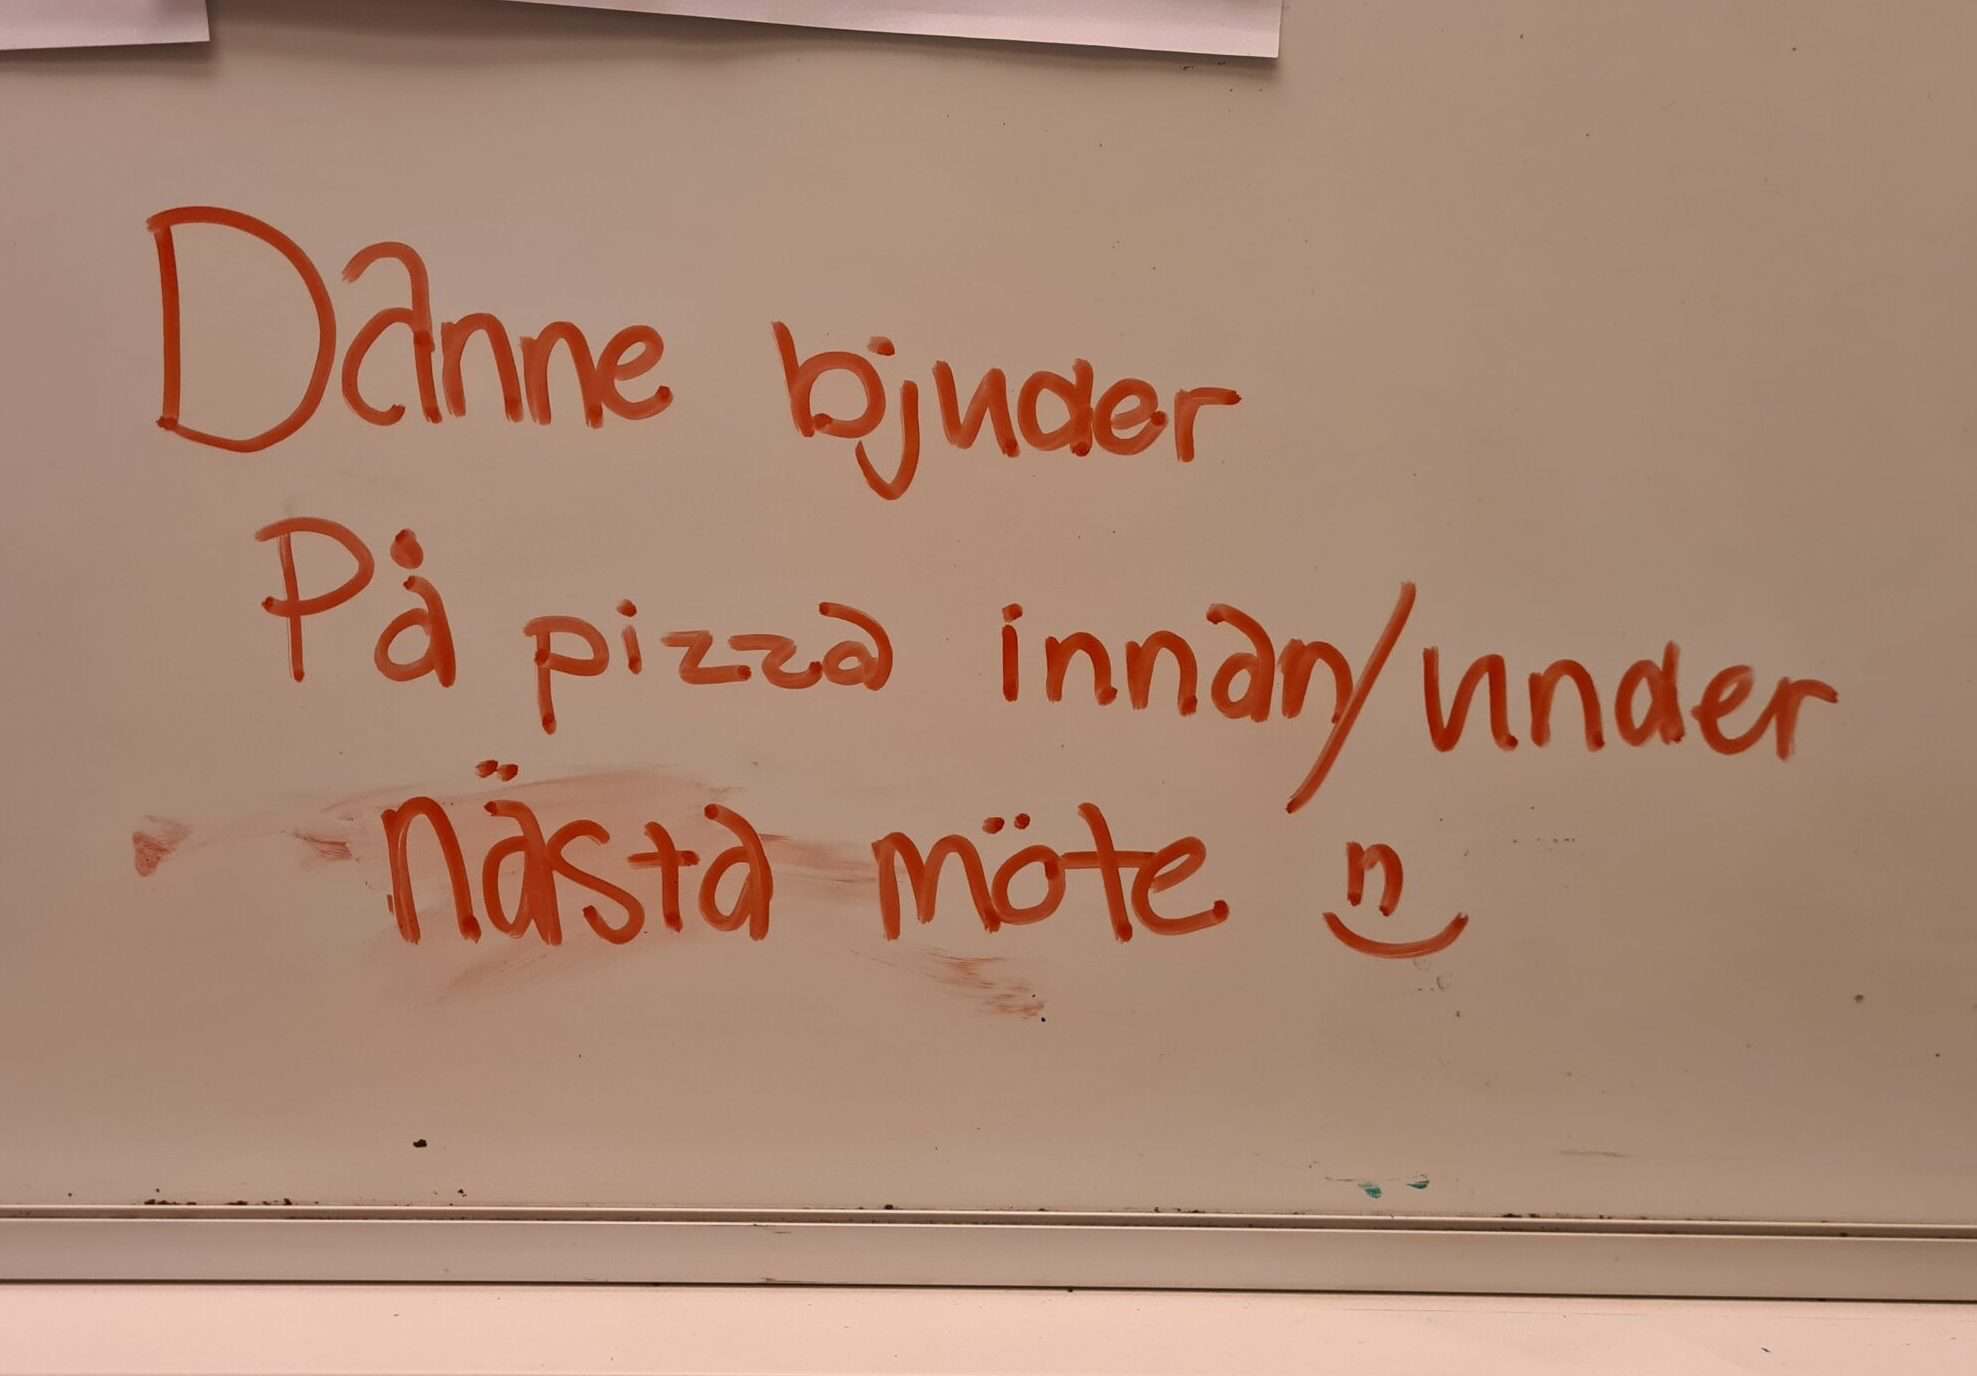 Danne bjuder
På pizza innan/under
nästa möte